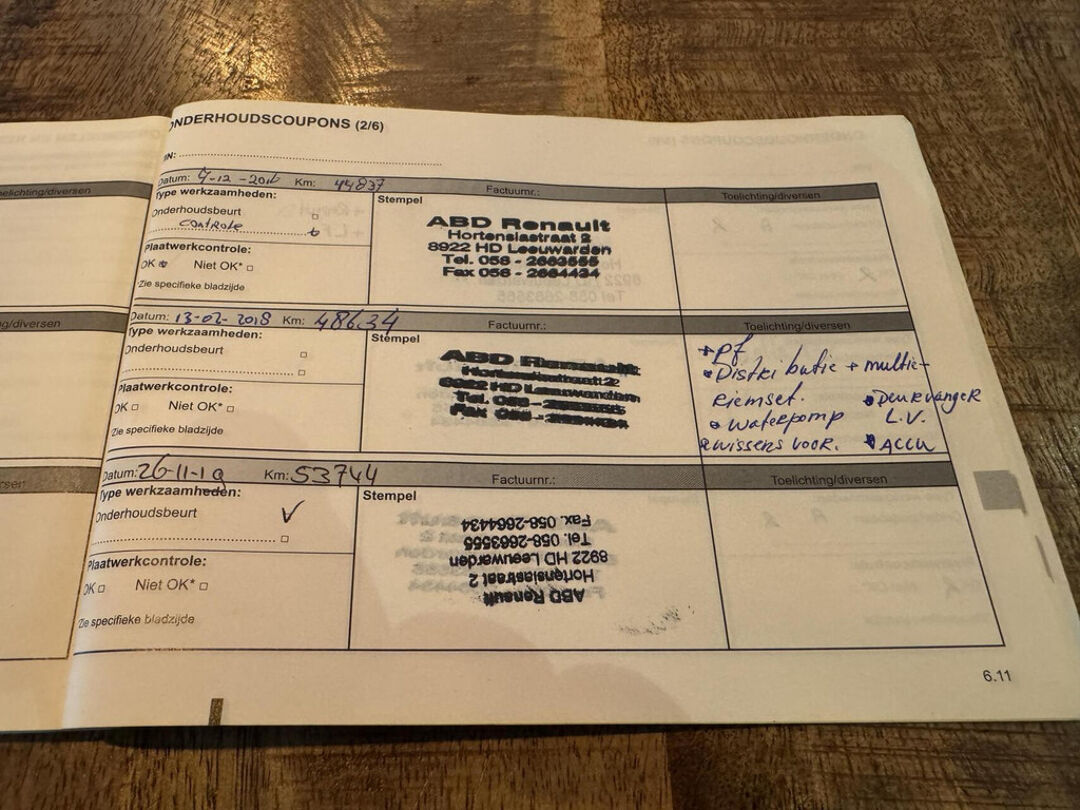 ONDERHOUDSCOUPONS (2/6)
Datum: 7-12-2016 Km: 44837 Factuurnr.: Toelichting/diversen
Type werkzaamheden:
Onderhoudsbeurt
controle
Plaatwerkcontrole:
OK Niet OK*
*Zie specifieke bladzijde
Stempel
ABD Renault
Hortensiastraat 2
8922 HD Leeuwarden
Tel. 058 - 2663555
Fax 058 - 2664434
Datum: 13-02-2018 Km: 48634 Factuurnr.: Toelichting/diversen
Type werkzaamheden:
Onderhoudsbeurt
Plaatwerkcontrole:
OK Niet OK*
Zie specifieke bladzijde
Stempel
ABD Renault
Hortensiastraat 2
8922 HD Leeuwarden
Tel. 058 -
Fax 058 -
+ pf
• Distributie + multie-
riemset.
• waterpomp
• wissers voor.
• Deurvanger
L.V.
• ACCU
Datum: 26-11-19 Km: 53744 Factuurnr.: Toelichting/diversen
Type werkzaamheden:
Onderhoudsbeurt ✓
Plaatwerkcontrole:
OK Niet OK*
Zie specifieke bladzijde
Stempel
ABD Renault
Hortensiastraat 2
8922 HD Leeuwarden
Tel. 058-2663555
Fax. 058-2664434
6.11
toelichting/diversen